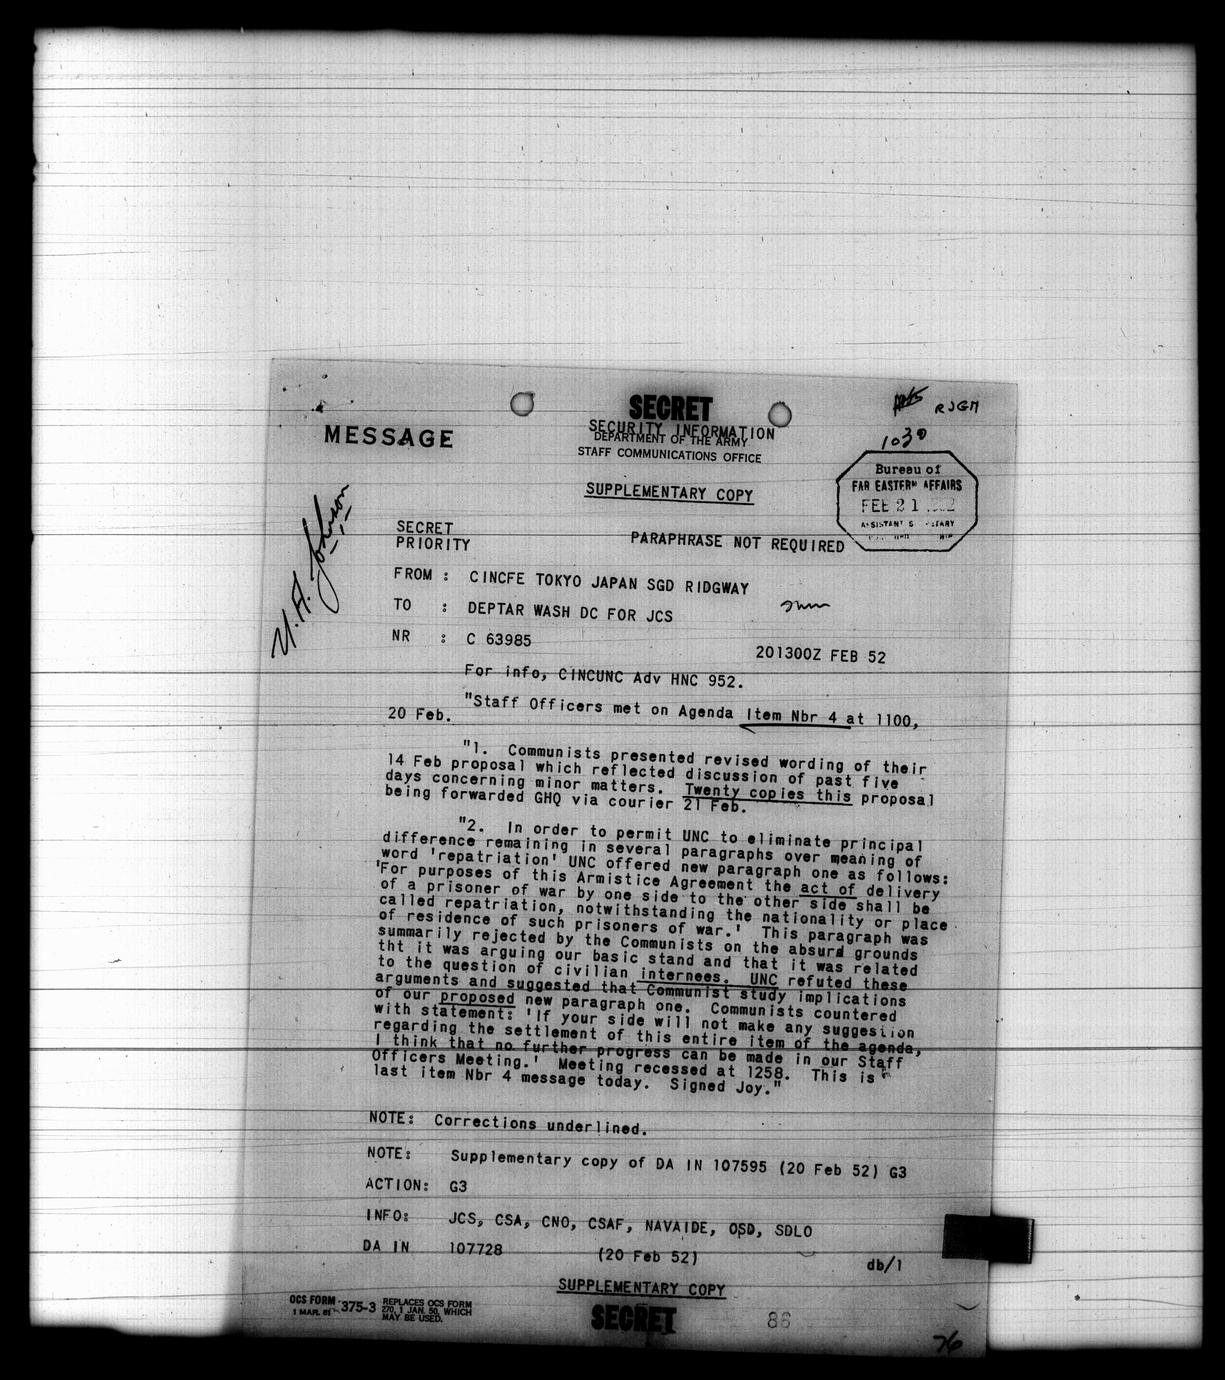 SECRET
SECURITY INFORMATION
DEPARTMENT OF THE ARMY
STAFF COMMUNICATIONS OFFICE
MESSAGE
RJGM
1030
SUPPLEMENTARY COPY
Bureau of
FAR EASTERN AFFAIRS
FEB 21
U.A. Johnson
SECRET
PRIORITY
PARAPHRASE NOT REQUIRED
FROM : CINCFE TOKYO JAPAN SGD RIDGWAY
TO : DEPTAR WASH DC FOR JCS
NR : C 63985
201300Z FEB 52
For info, CINCUNC Adv HNC 952.
"Staff Officers met on Agenda Item Nbr 4 at 1100,
20 Feb.
"1. Communists presented revised wording of their
14 Feb proposal which reflected discussion of past five
days concerning minor matters. Twenty copies this proposal
being forwarded GHQ via courier 21 Feb.
"2. In order to permit UNC to eliminate principal
difference remaining in several paragraphs over meaning of
word 'repatriation' UNC offered new paragraph one as follows:
'For purposes of this Armistice Agreement the act of delivery
of a prisoner of war by one side to the other side shall be
called repatriation, notwithstanding the nationality or place
of residence of such prisoners of war.' This paragraph was
summarily rejected by the Communists on the absurd grounds
tht it was arguing our basic stand and that it was related
to the question of civilian internees. UNC refuted these
arguments and suggested that Communist study implications
of our proposed new paragraph one. Communists countered
with statement: 'If your side will not make any suggestion
regarding the settlement of this entire item of the agenda,
I think that no further progress can be made in our Staff
Officers Meeting.' Meeting recessed at 1258. This is
last item Nbr 4 message today. Signed Joy."
NOTE: Corrections underlined.
NOTE: Supplementary copy of DA IN 107595 (20 Feb 52) G3
ACTION: G3
INFO: JCS, CSA, CNO, CSAF, NAVAIDE, OSD, SDLO
DA IN 107728 (20 Feb 52)
db/1
SUPPLEMENTARY COPY
OCS FORM 375-3 REPLACES OCS FORM
1 MAR. 51 270, 1 JAN. 50, WHICH
MAY BE USED.
SECRET
86
76